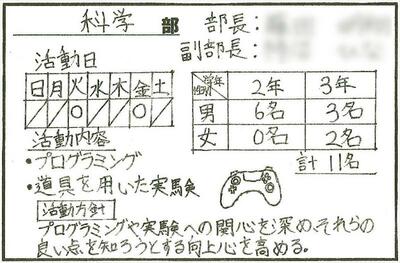 科学 部 部長:
副部長:
活動日
日 月 火 水 木 金 土
/ / ○ / / ○ /
学年 性別 2年 3年
男 6名 3名
女 0名 2名
計 11名
活動内容
・プログラミング
・道具を用いた実験
活動方針
プログラミングや実験への関心を深め、それらの
良い点を知ろうとする向上心を高める。